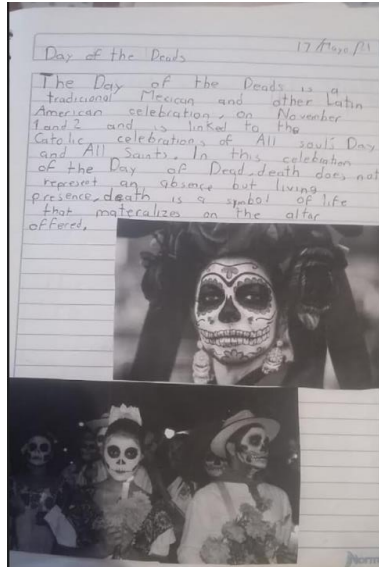 17/Mayo/21
Day of the Deads
The Day of the Deads is a
tradicional Mecican and other Latin
American celebration, on November
1 and 2 and is linked to the
Catolic celebrations of All soul's Day
and All Saints. In this celebration
of the Day of Dead, death does not
represent an absence but living
presence, death is a symbol of life
that materalizes on the altar
offered.
Norma